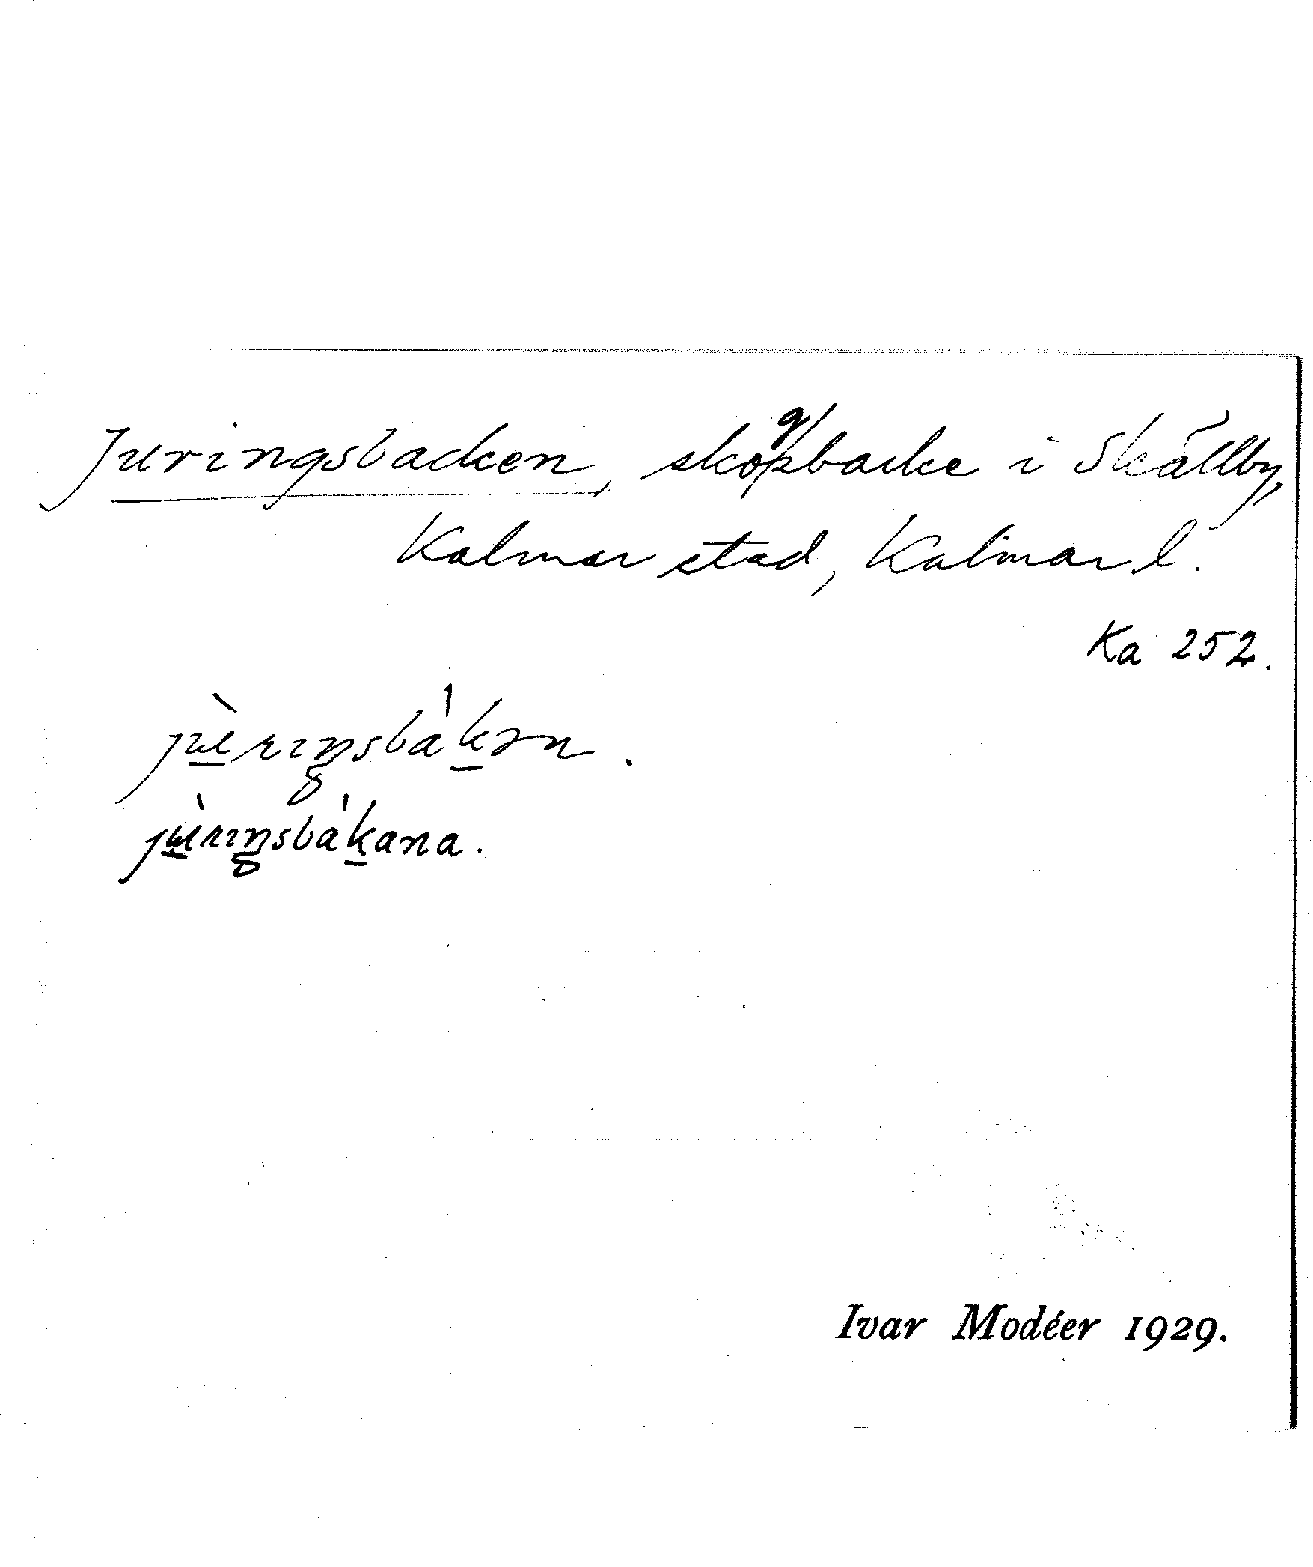 Juringsbacken, skogsbacke i Skälby,
Kalmar stad, Kalmar l.
Ka 252.
jùrıŋsbákən.
jùrıŋsbákana.
Ivar Modéer 1929.